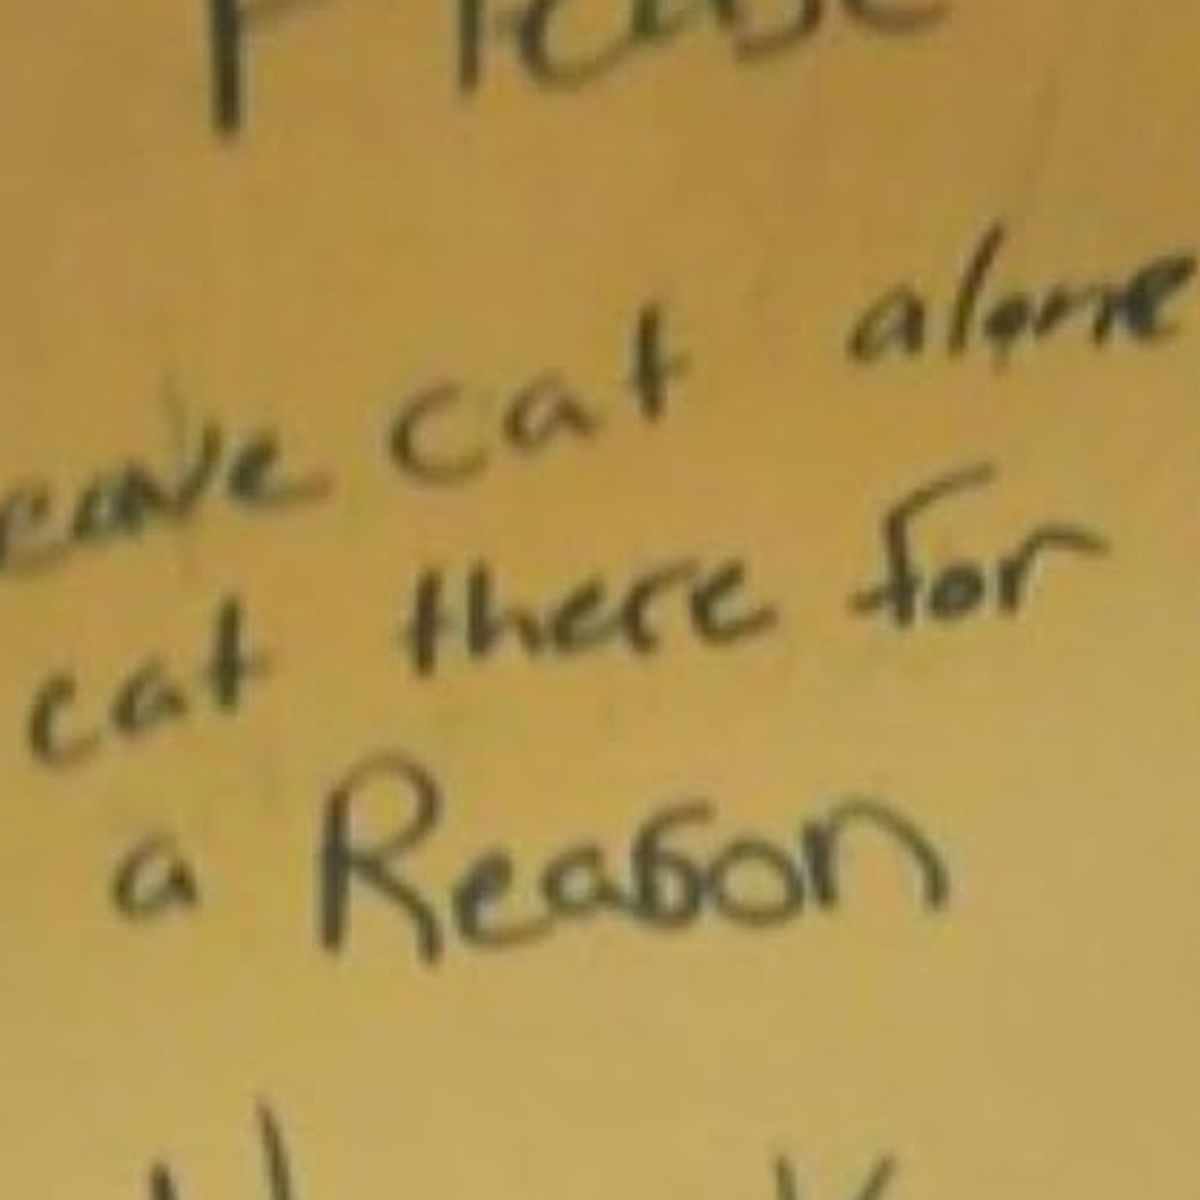 Please
eave cat alone
cat there for
a Reason